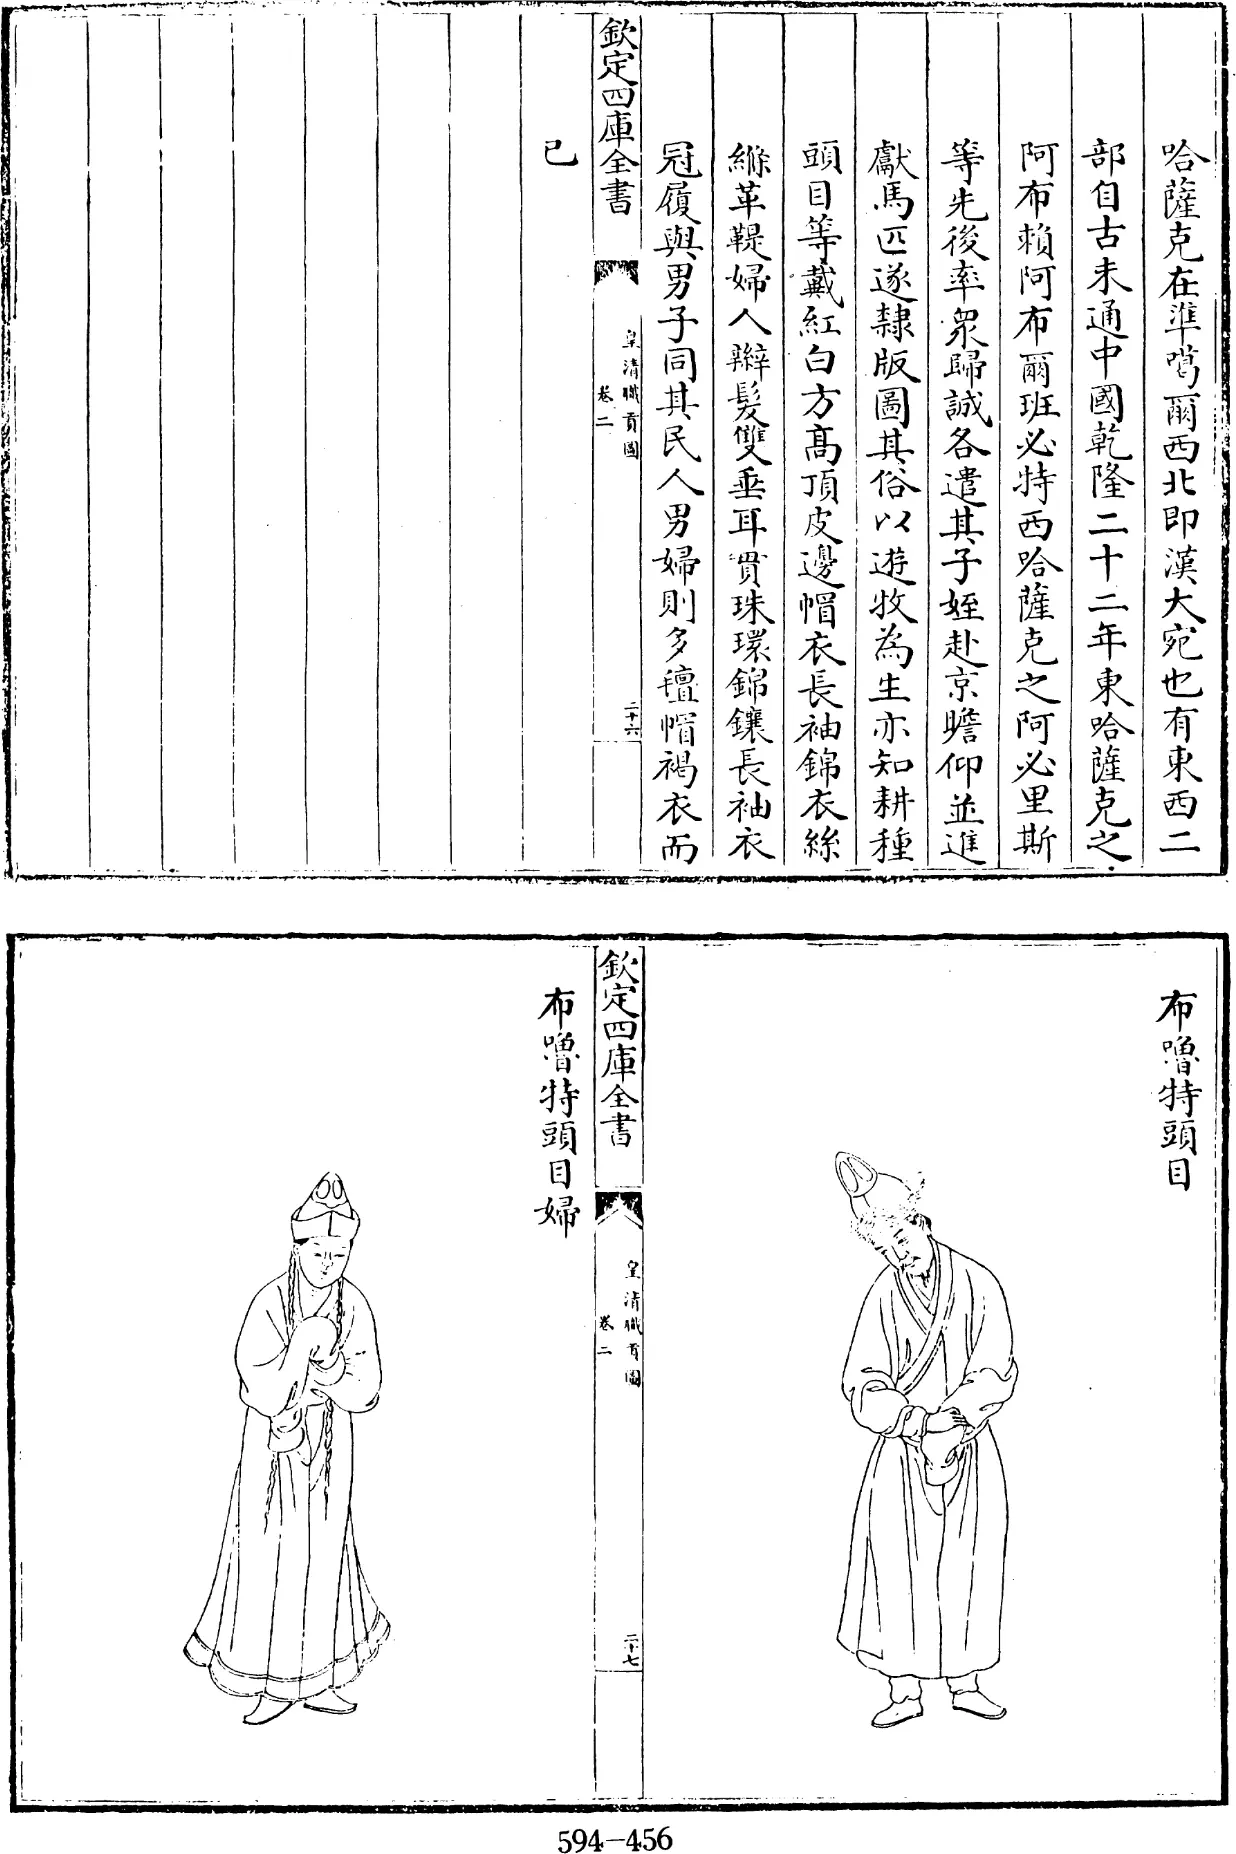 哈薩克在準噶爾西北即漢大宛也有東西二
部自古未通中國乾隆二十二年東哈薩克之
阿布賴阿布爾班必特西哈薩克之阿必里斯
等先後率衆歸誠各遣其子姪赴京瞻仰並進
獻馬匹遂隸版圖其俗以遊牧為生亦知耕種
頭目等戴紅白方高頂皮邊帽衣長袖錦衣絲
縧革鞮婦人辮髮雙垂耳貫珠環錦鑲長袖衣
冠履與男子同其民人男婦則多氊帽褐衣而
欽定四庫全書
皇清職貢圖
卷二
二十六
已
布嚕特頭目
欽定四庫全書
皇清職貢圖
卷二
二十七
布嚕特頭目婦
594-456